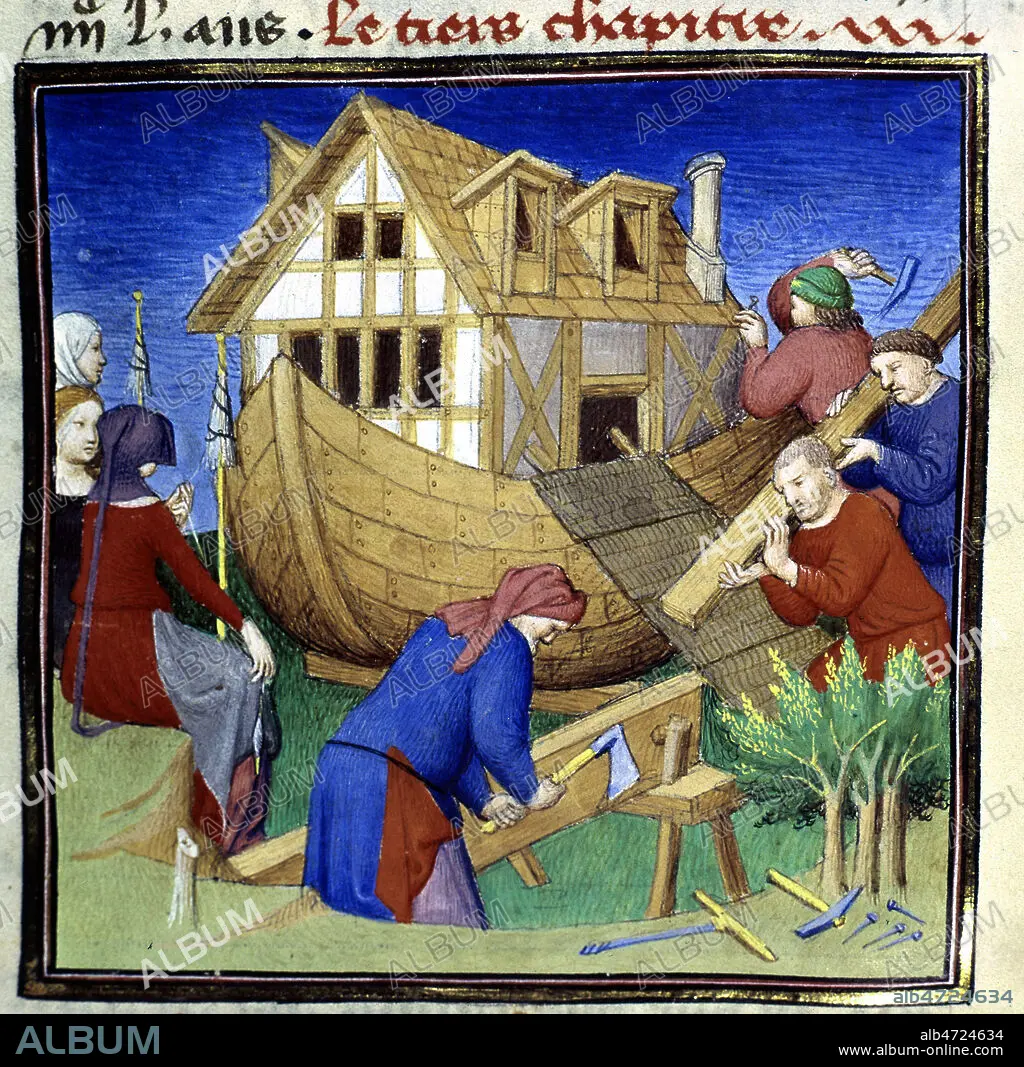 iiii L. ans. Le tiers chapitre.
ALBUM
alb4724634
ALBUM
alb4724634
www.album-online.com